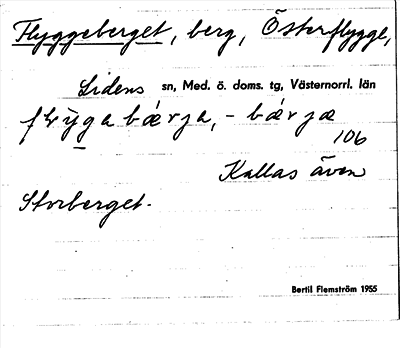 Flyggeberget, berg, Österflygge,
Lidens sn, Med. ö. doms. tg, Västernorrl. län
106
Kallas även
Storberget.
Bertil Flemström 1955